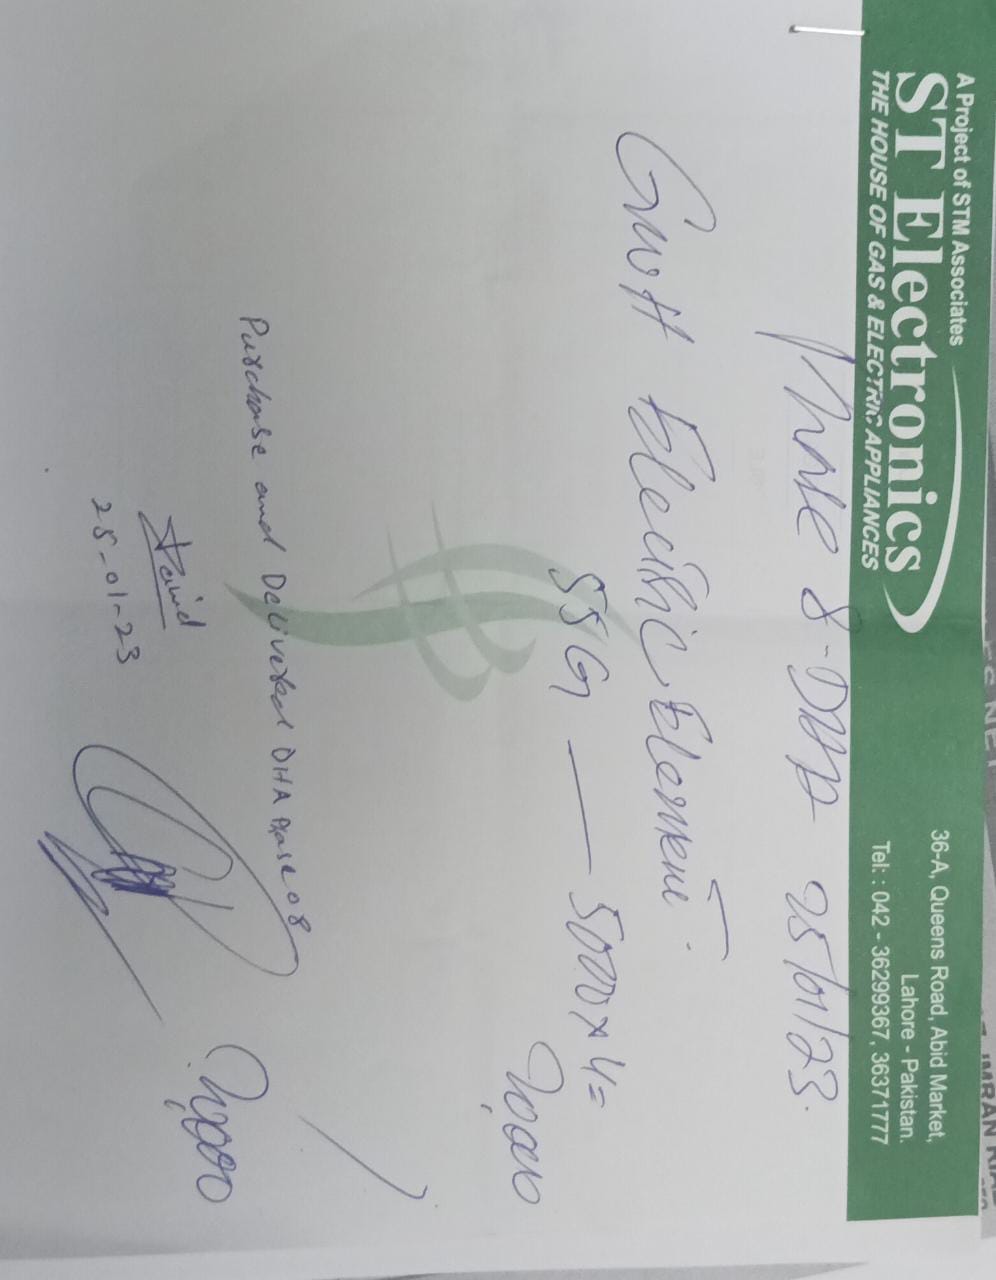 A Project of STM Associates
ST Electronics
THE HOUSE OF GAS & ELECTRIC APPLIANCES
36-A, Queens Road, Abid Market,
Lahore - Pakistan.
Tel: : 042 - 36299367, 36371777
8-DHA 25/01/23.
Electric Element
55G — 5000 x 4=
20,000
Purchase and Delivered DHA Phase 08
28-01-23
20,000